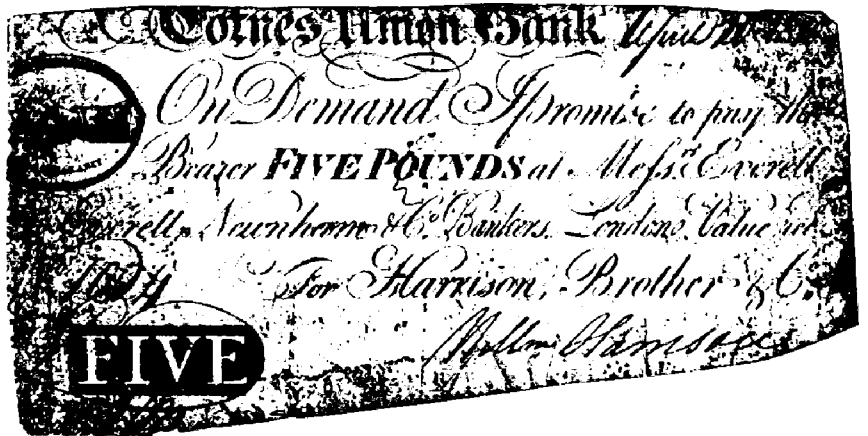 Totnes Union Bank April
On Demand I promise to pay the
Bearer FIVE POUNDS at Messrs. Everell
Newnham & Co. Bankers, London, Value
For Harrison, Brother & Co.
FIVE